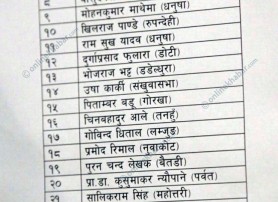 ९ मोहनकुमार माथेमा (धनुषा)
१० खिलराज पाण्डे (रुपन्देही)
११ राम सुख यादव (धनुषा)
१२ दुर्गाप्रसाद फुलारा (डोटी)
१३ भोजराज भट्ट (डडेल्धुरा)
१४ उषा कार्की (संखुवासभा)
१५ पिताम्बर बडू (गोरखा)
१६ चिनबहादुर आले (तनहूँ)
१७ गोविन्द धिताल (लम्जुङ)
१८ प्रमोद रिमाल (नुवाकोट)
१९ पूरन चन्द लेखके (बैतडी)
२० प्रा.डा. कुसुमाकर न्यौपाने (पर्वत)
२१ सालिकराम सिंह (महोत्तरी)